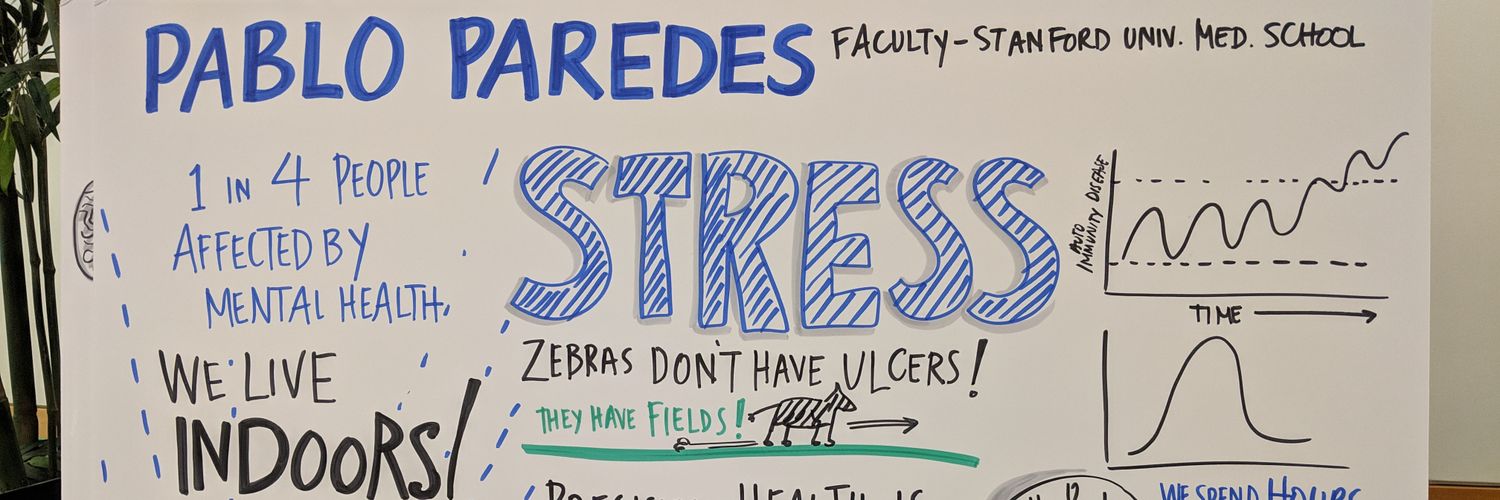 PABLO PAREDES FACULTY-STANFORD UNIV. MED. SCHOOL
1 IN 4 PEOPLE
AFFECTED BY
MENTAL HEALTH.
WE LIVE
INDOORS!
STRESS
ZEBRAS DON'T HAVE ULCERS!
THEY HAVE FIELDS!
AUTO
IMMUNITY DISEASE
TIME
HEALTH IS
12
WE SPEND HOURS